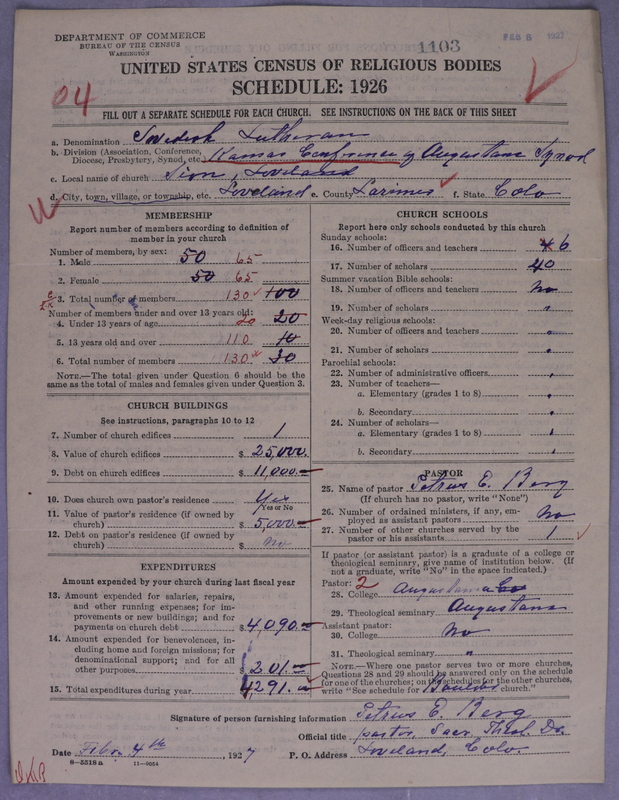 DEPARTMENT OF COMMERCE
BUREAU OF THE CENSUS
WASHINGTON
1103
FEB 8 1927
UNITED STATES CENSUS OF RELIGIOUS BODIES
SCHEDULE: 1926
04
FILL OUT A SEPARATE SCHEDULE FOR EACH CHURCH. SEE INSTRUCTIONS ON THE BACK OF THIS SHEET
a. Denomination Swedish Lutheran
b. Division (Association, Conference, Diocese, Presbytery, Synod, etc.) Kansas Conference of Augustana Synod
c. Local name of church Zion, Loveland
d. City, town, village, or township, etc. Loveland e. County Larimer f. State Colo
MEMBERSHIP
Report number of members according to definition of
member in your church
Number of members, by sex:
1. Male 50 65
2. Female 50 65
3. Total number of members 130 100
Number of members under and over 13 years old:
4. Under 13 years of age 20 20
5. 13 years old and over 110 10
6. Total number of members 130 30
NOTE.—The total given under Question 6 should be the
same as the total of males and females given under Question 3.
CHURCH BUILDINGS
See instructions, paragraphs 10 to 12
7. Number of church edifices 1
8. Value of church edifices $ 25,000.
9. Debt on church edifices $ 11,000.
10. Does church own pastor's residence Yes
Yes or No
11. Value of pastor's residence (if owned by
church) $ 5,000
12. Debt on pastor's residence (if owned by
church) $ no
EXPENDITURES
Amount expended by your church during last fiscal year
13. Amount expended for salaries, repairs,
and other running expenses; for im-
provements or new buildings; and for
payments on church debt $ 4,090.
14. Amount expended for benevolences, in-
cluding home and foreign missions; for
denominational support; and for all
other purposes $ 201.
15. Total expenditures during year $ 4291.
CHURCH SCHOOLS
Report here only schools conducted by this church
Sunday schools:
16. Number of officers and teachers 6
17. Number of scholars 40
Summer vacation Bible schools:
18. Number of officers and teachers no
19. Number of scholars "
Week-day religious schools:
20. Number of officers and teachers "
21. Number of scholars "
Parochial schools:
22. Number of administrative officers "
23. Number of teachers—
a. Elementary (grades 1 to 8) "
b. Secondary "
24. Number of scholars—
a. Elementary (grades 1 to 8) "
b. Secondary "
PASTOR
25. Name of pastor Petrus E. Berg
(If church has no pastor, write "None")
26. Number of ordained ministers, if any, em-
ployed as assistant pastors no
27. Number of other churches served by the
pastor or his assistants 1
If pastor (or assistant pastor) is a graduate of a college or
theological seminary, give name of institution below. (If
not a graduate, write "No" in the space indicated.)
Pastor: 2
28. College Augustana
29. Theological seminary Augustana
Assistant pastor:
30. College No
31. Theological seminary "
NOTE.—Where one pastor serves two or more churches,
Questions 28 and 29 should be answered only on the schedule
for one of the churches; on the schedules for the other churches,
write "See schedule for Boulder church."
Signature of person furnishing information Petrus E. Berg
Official title pastor, Sacr. Theol. Dr.
Date Feb. 4th, 1927 P. O. Address Loveland, Colo.
8—5518 a 11—9054